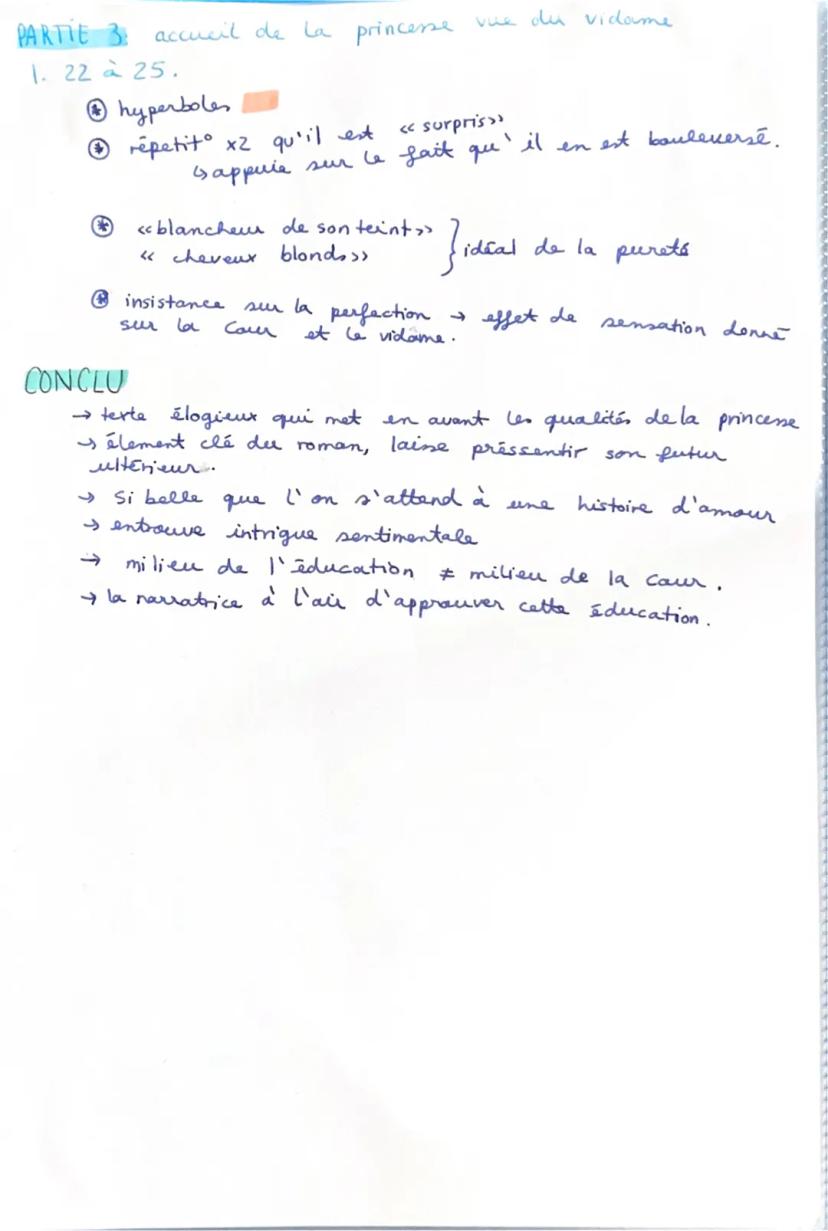 PARTIE 3: accueil de la princesse vue du vidame
l. 22 à 25.
* hyperboles
* répétit° x2 qu'il est «surpris»
↳ appuie sur le fait qu'il en est bouleversé.
* «blancheur de son teint»
« cheveux blonds»
} idéal de la pureté
* insistance sur la perfection → effet de sensation donné
sur la cour et le vidame.
CONCLU
→ texte élogieux qui met en avant les qualités de la princesse
→ élement clé du roman, laisse préssentir son futur
ultérieur.
→ Si belle que l'on s'attend à une histoire d'amour
→ entrouve intrigue sentimentale
→ milieu de l'éducation ≠ milieu de la cour.
→ la narratrice à l'air d'approuver cette éducation.